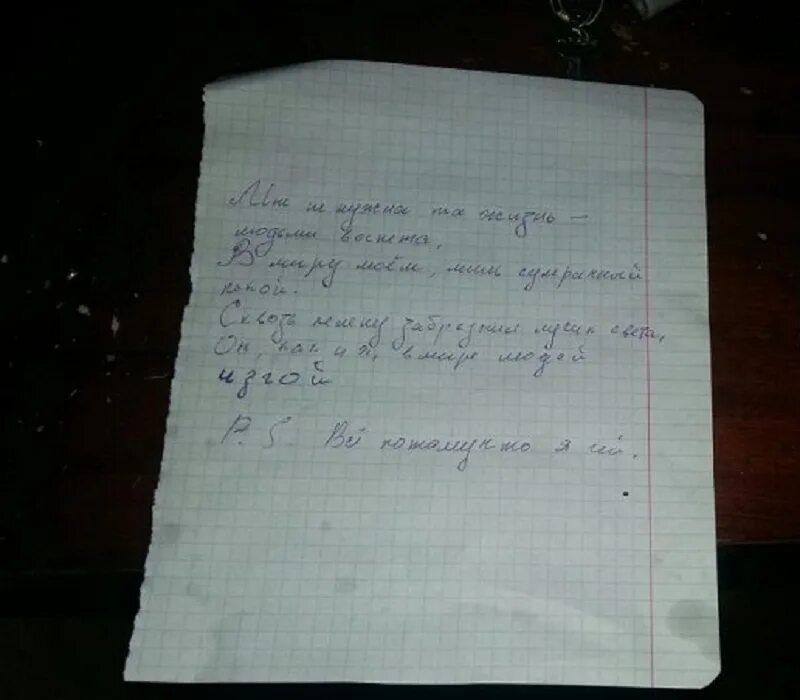 Мне не нужна та жизнь –
людьми воспета,
В миру моём, лишь сумрачный
покой.
Сквозь пелену забрезжил лучик света,
Он, как и я, в мире людей
изгой
P.S. Всё потомучто я